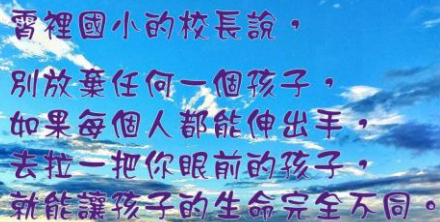 霄裡國小的校長說，
別放棄任何一個孩子，
如果每個人都能伸出手，
去拉一把你眼前的孩子，
就能讓孩子的生命完全不同。